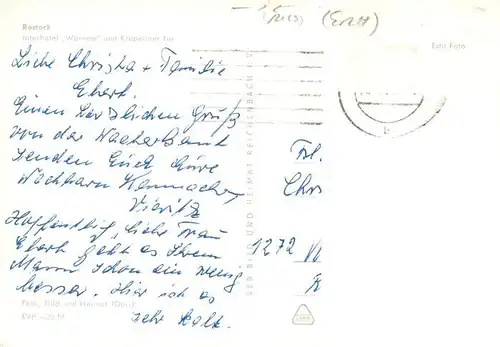 Rostock
Interhotel „Warnow" und Kröpeliner Tor
Echt Foto
Liebe Christa + Familie
Ebert.
Einen herzlichen Gruß
von der
senden Euch Eure
Nachbarn
Hoffentlich, liebe Frau
Ebert geht es Ihrem
Mann schon ein wenig
besser. Hier ist es
sehr kalt.
VEB BILD UND HEIMAT REICHENBACH I. V.
Frl.
Chr
1272
Foto: Bild und Heimat